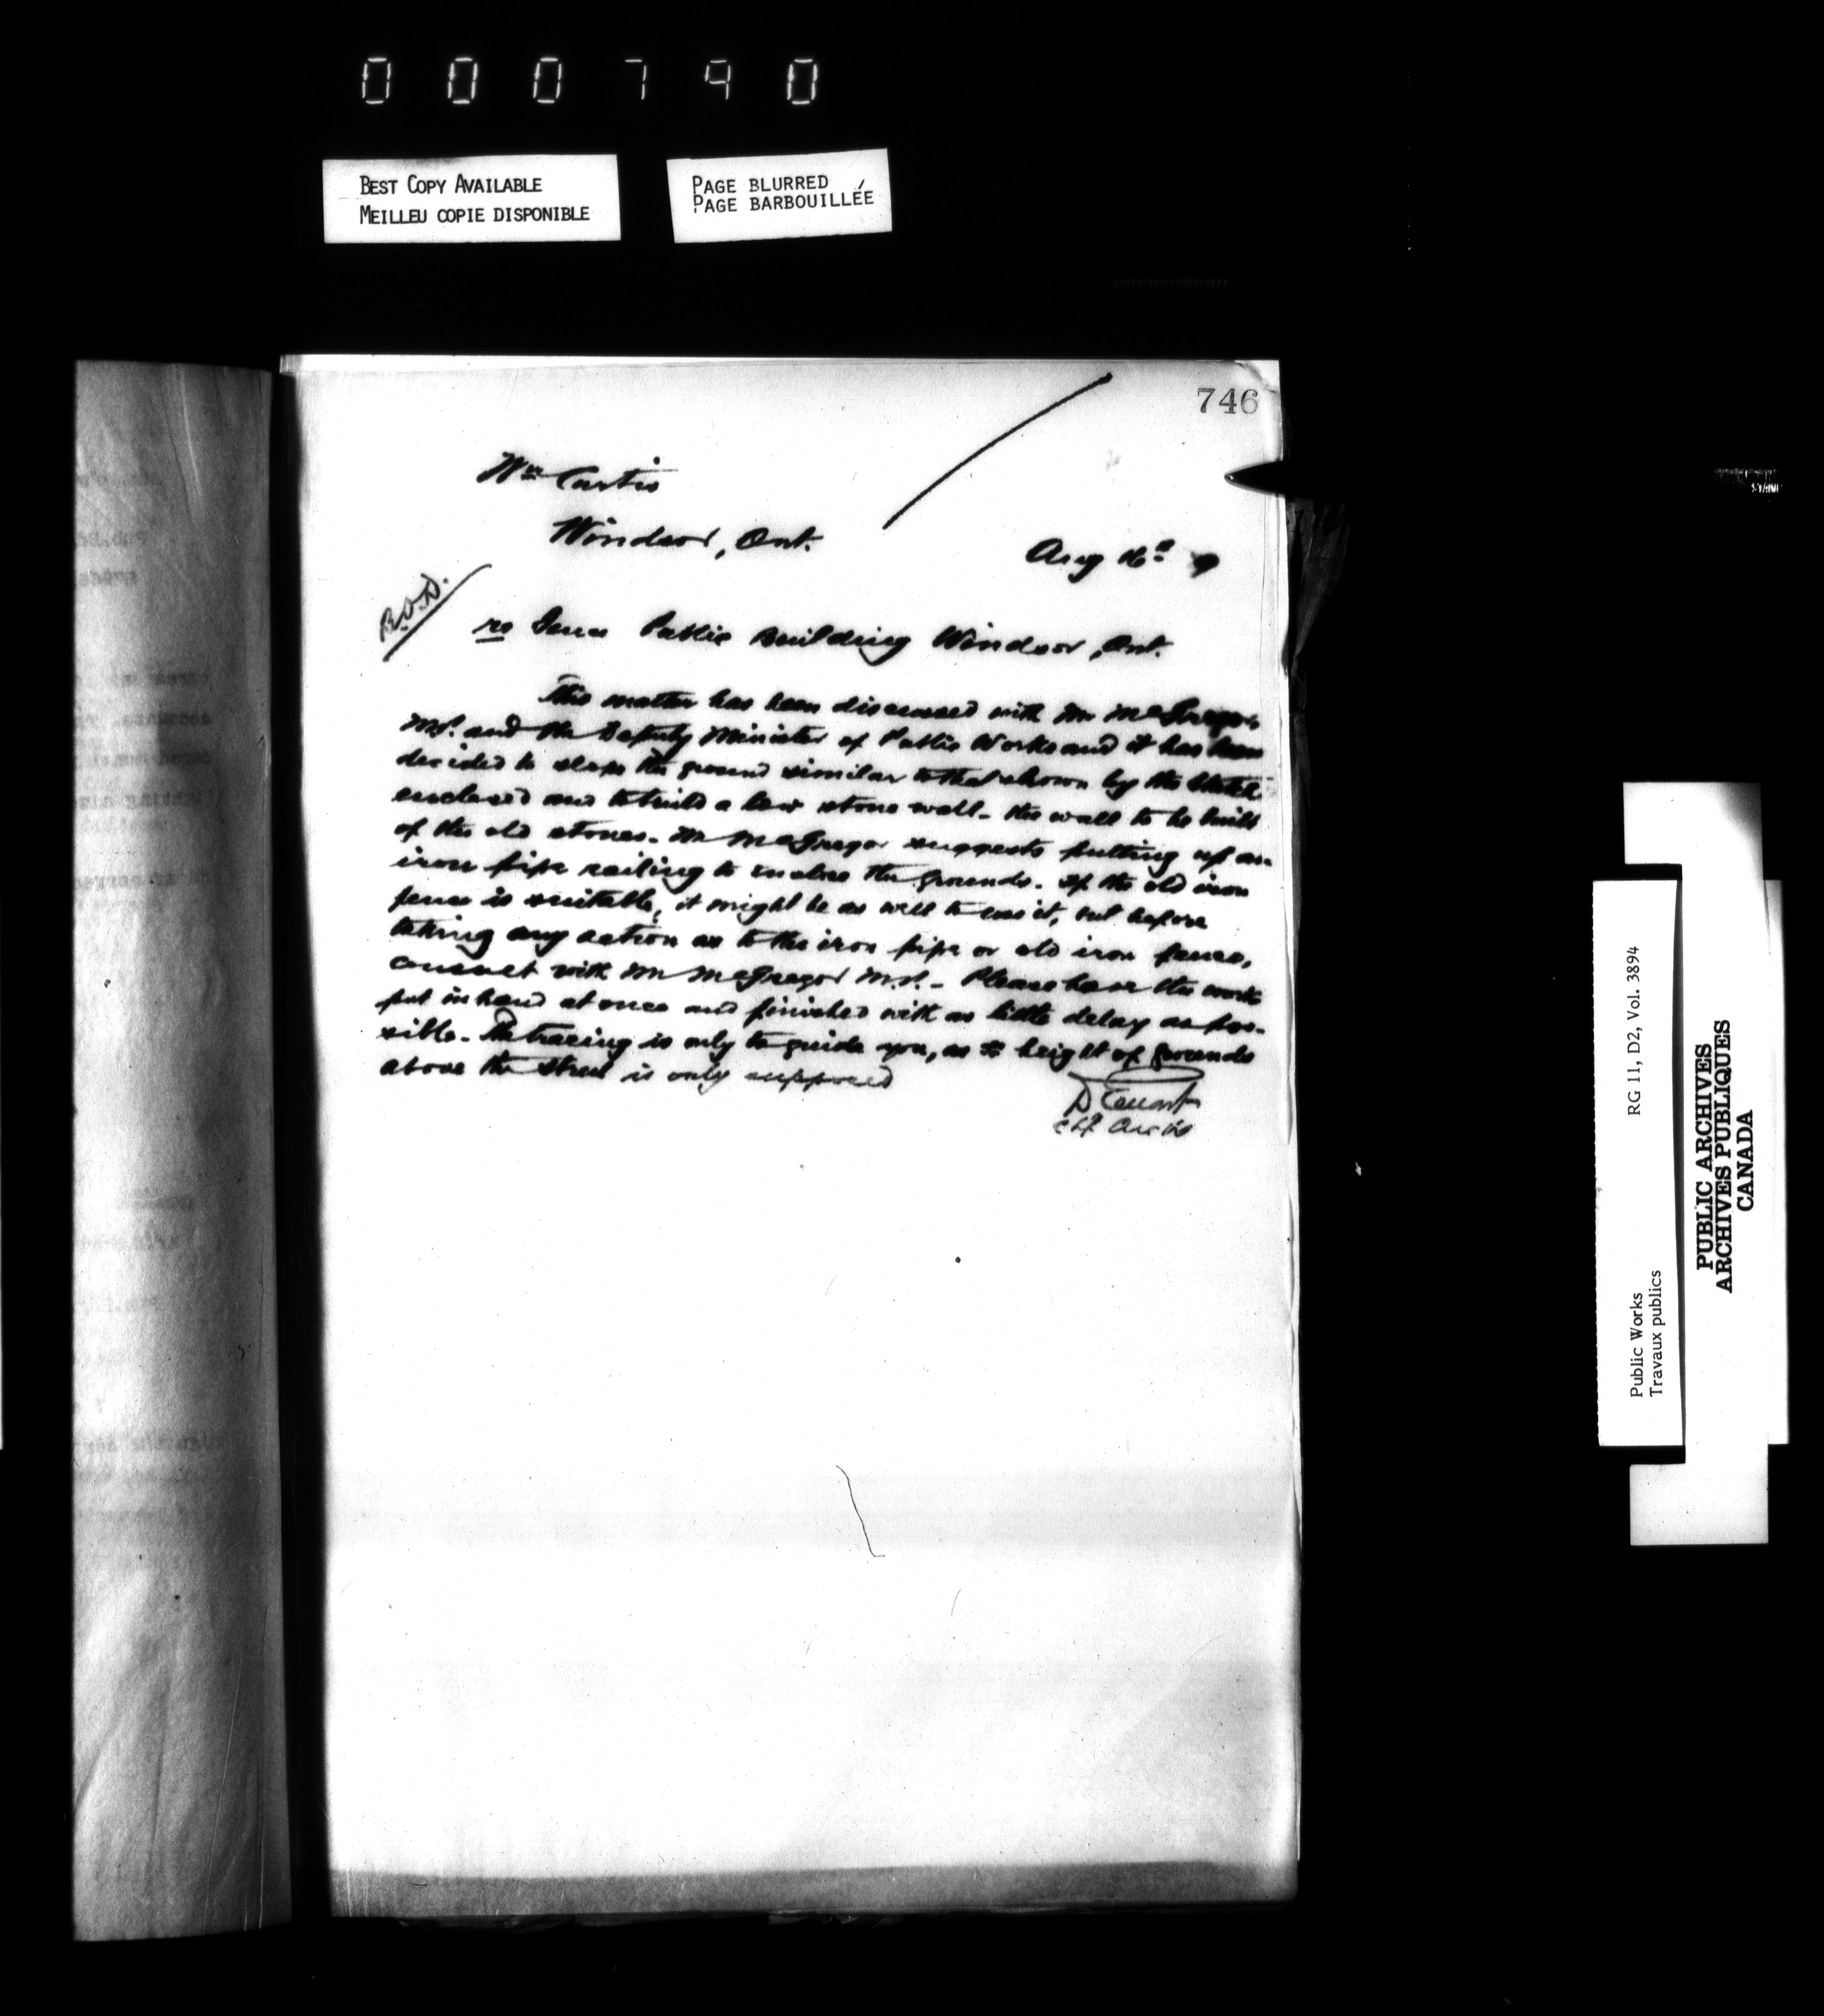 000790
BEST COPY AVAILABLE
MEILLEU COPIE DISPONIBLE
PAGE BLURRED
PAGE BARBOUILLÉE
746
Wm Curtis
Windsor, Ont.
Aug 16th 9
B.O.D.
re Fence Public Building Windsor, Ont.
This matter has been discussed with Mr McGregor,
M.P. and the Deputy Minister of Public Works and it has been
decided to slope the ground similar to that shown by the sketch
enclosed and to build a low stone wall - the wall to be built
of the old stones. Mr McGregor suggests putting up an
iron pipe railing to enclose the grounds. If the old iron
fence is suitable, it might be as well to use it, but before
taking any action as to the iron pipe or old iron fence,
consult with Mr McGregor M.P. - Please have the work
put in hand at once and finished with as little delay as pos-
sible. The tracing is only to guide you, as height of grounds
above the street is only supposed
D Ewart
Chf Arch
Public Works
Travaux publics
RG 11, D2, Vol. 3894
PUBLIC ARCHIVES
ARCHIVES PUBLIQUES
CANADA